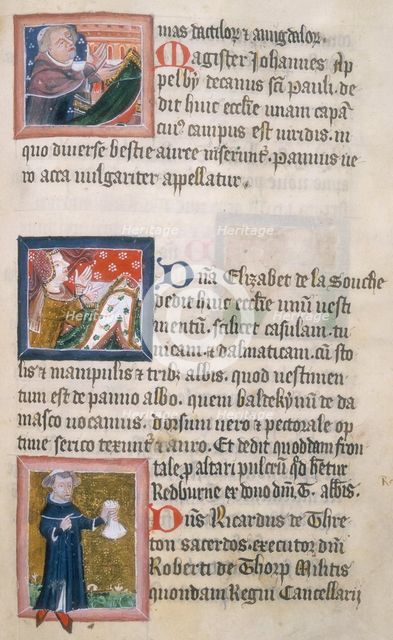 mas dactilor ⁊ amigdalor.
Magister Johannes Ap
pelby decanus sci pauli. de
dit huic ecclie unam capam
cui⁹ campus est viridis. in
quo diverse bestie auree inserunt͛. Pannus ve
ro acca vulgariter appellatur.
Dn̄a Elizabet de la Souche
dedit huic ecclie unū vesti
mentū. scilicet casulam. tu
nicam. ⁊ dalmaticam. cū sto
lis ⁊ manipulis ⁊ tribꝫ albis. quod vestimen
tum est de panno albo. quem baltekyn̄ de da
masco vocamus. dorsum vero ⁊ pectorale op
time serico texunt͛ ⁊ auro. Et dedit quoddam fron
tale ꝑ altari pulcrū qd̄ het͛
Redburne ex dono dn̄i. T. abb̄is.
Dn̄s Ricardus de Thre
ton sacerdos. executor dn̄i
Roberti de Thorp Militis
quondam Regni Cancellarii
Heritage
Heritage
Heritage
Heritage
Heritage
Heritage
Heritage
Heritage